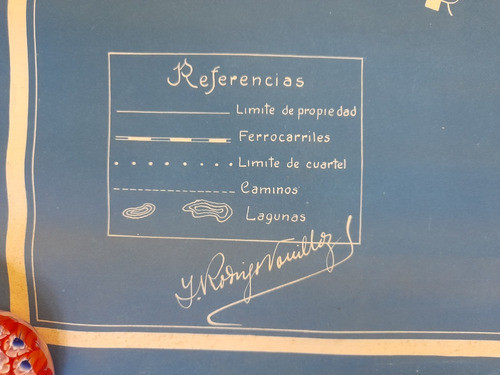 Referencias
Limite de propiedad
Ferrocarriles
Limite de cuartel
Caminos
Lagunas
Rodrigo